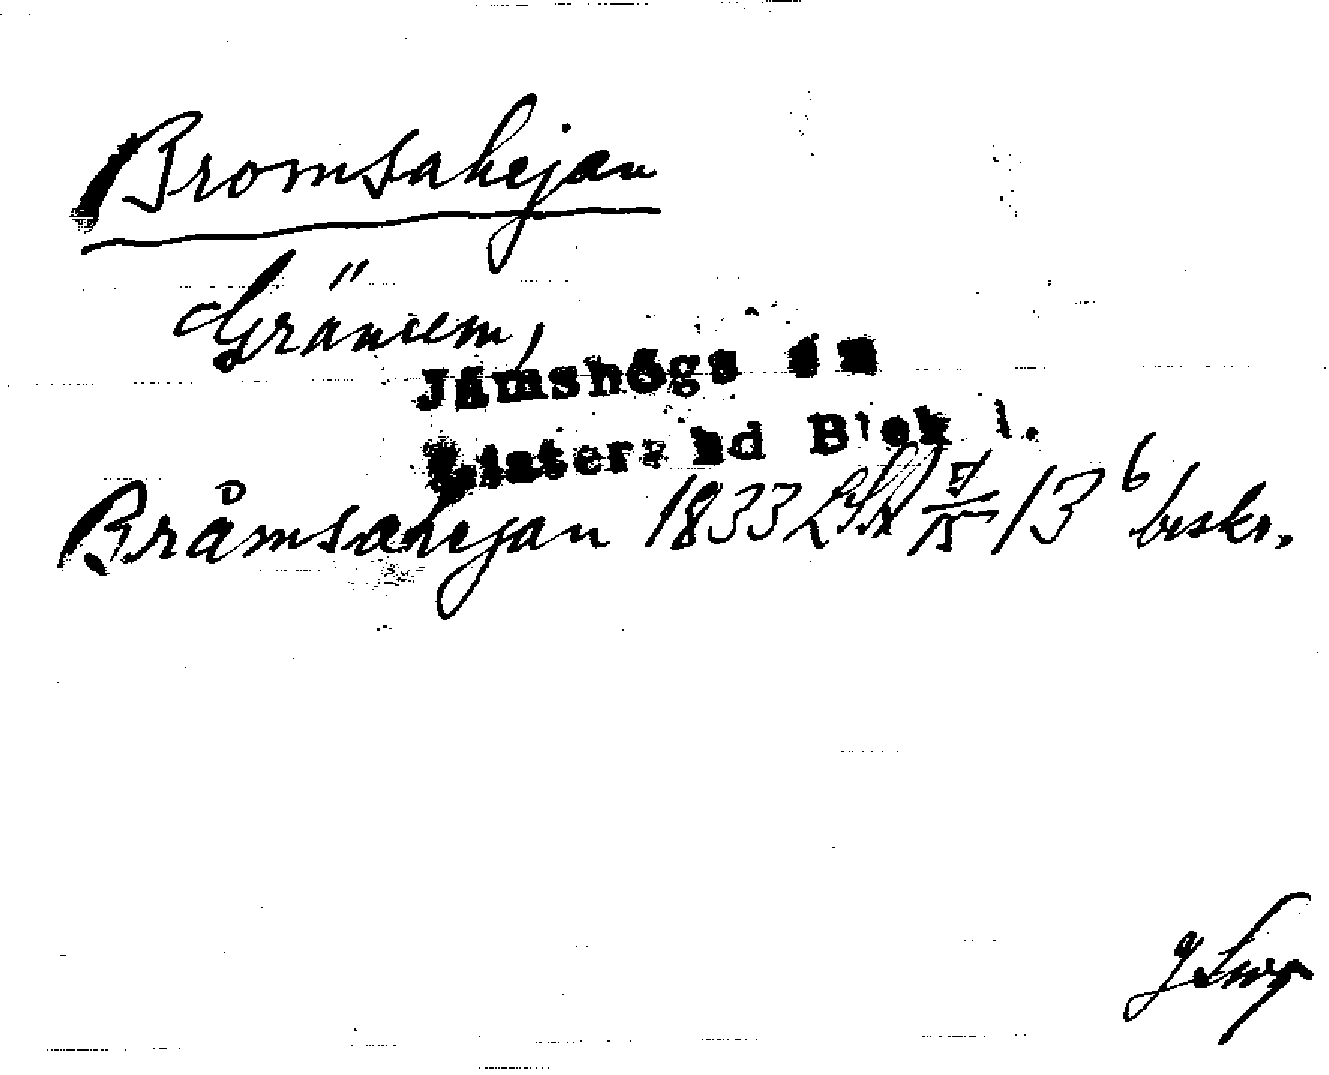 Bromsahejan
Gränum,
Jämshögs sn
Listers hd Blek l.
Bråmsahejan 1833 LSA 15/13 6 beskr.